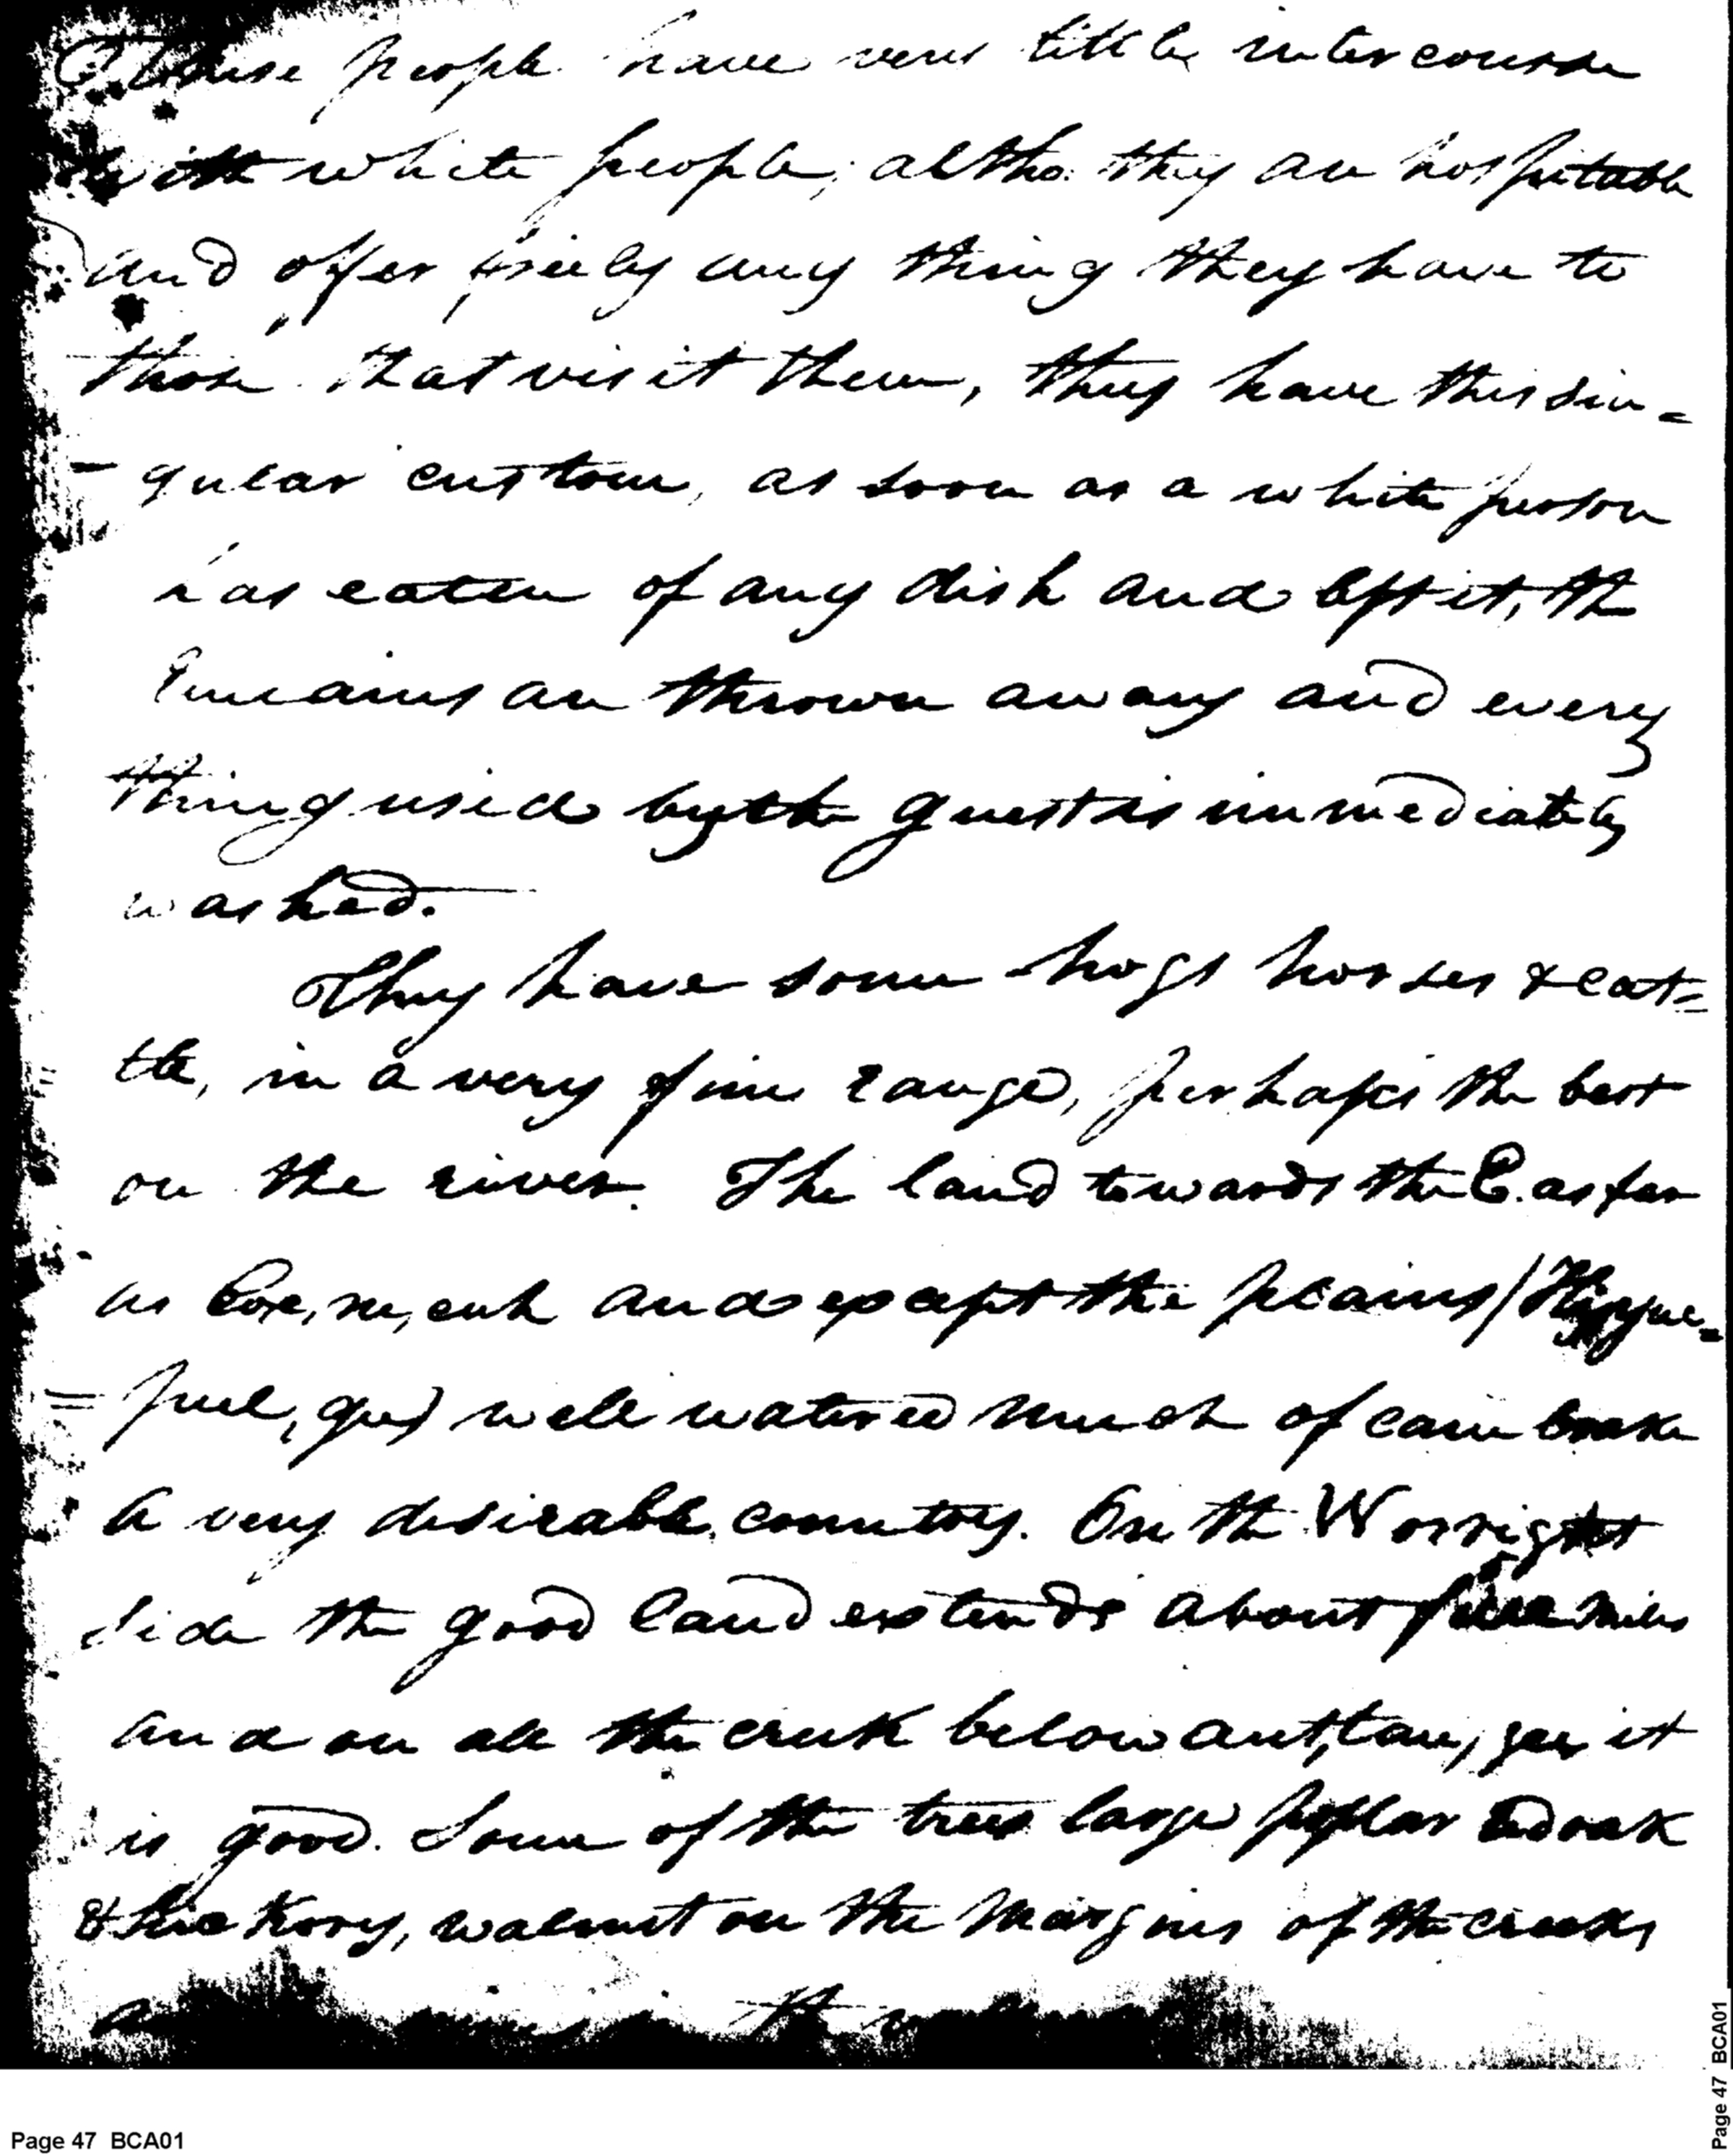 These people have very little intercourse
with white people; altho. they are hospitable
and offer freely any thing they have to
those that visit them, they have this sin=
= gular custom, as soon as a white person
has eaten of any dish and left it, the
remains are thrown away and every
thing used by the guest is immediately
washed.
They have some hogs horses & cat=
tle, in a very fine range, perhaps the best
on the river. The land towards the E. as far
as and except the plains
well watered much of cane brake
a very desirable country. On the W or right
side the good land extends about five miles
and on all the creek below it
is good. Some of the trees large poplar oak
& hickory, walnut on the margins of the creeks
Page 47 BCA01
Page 47 BCA01